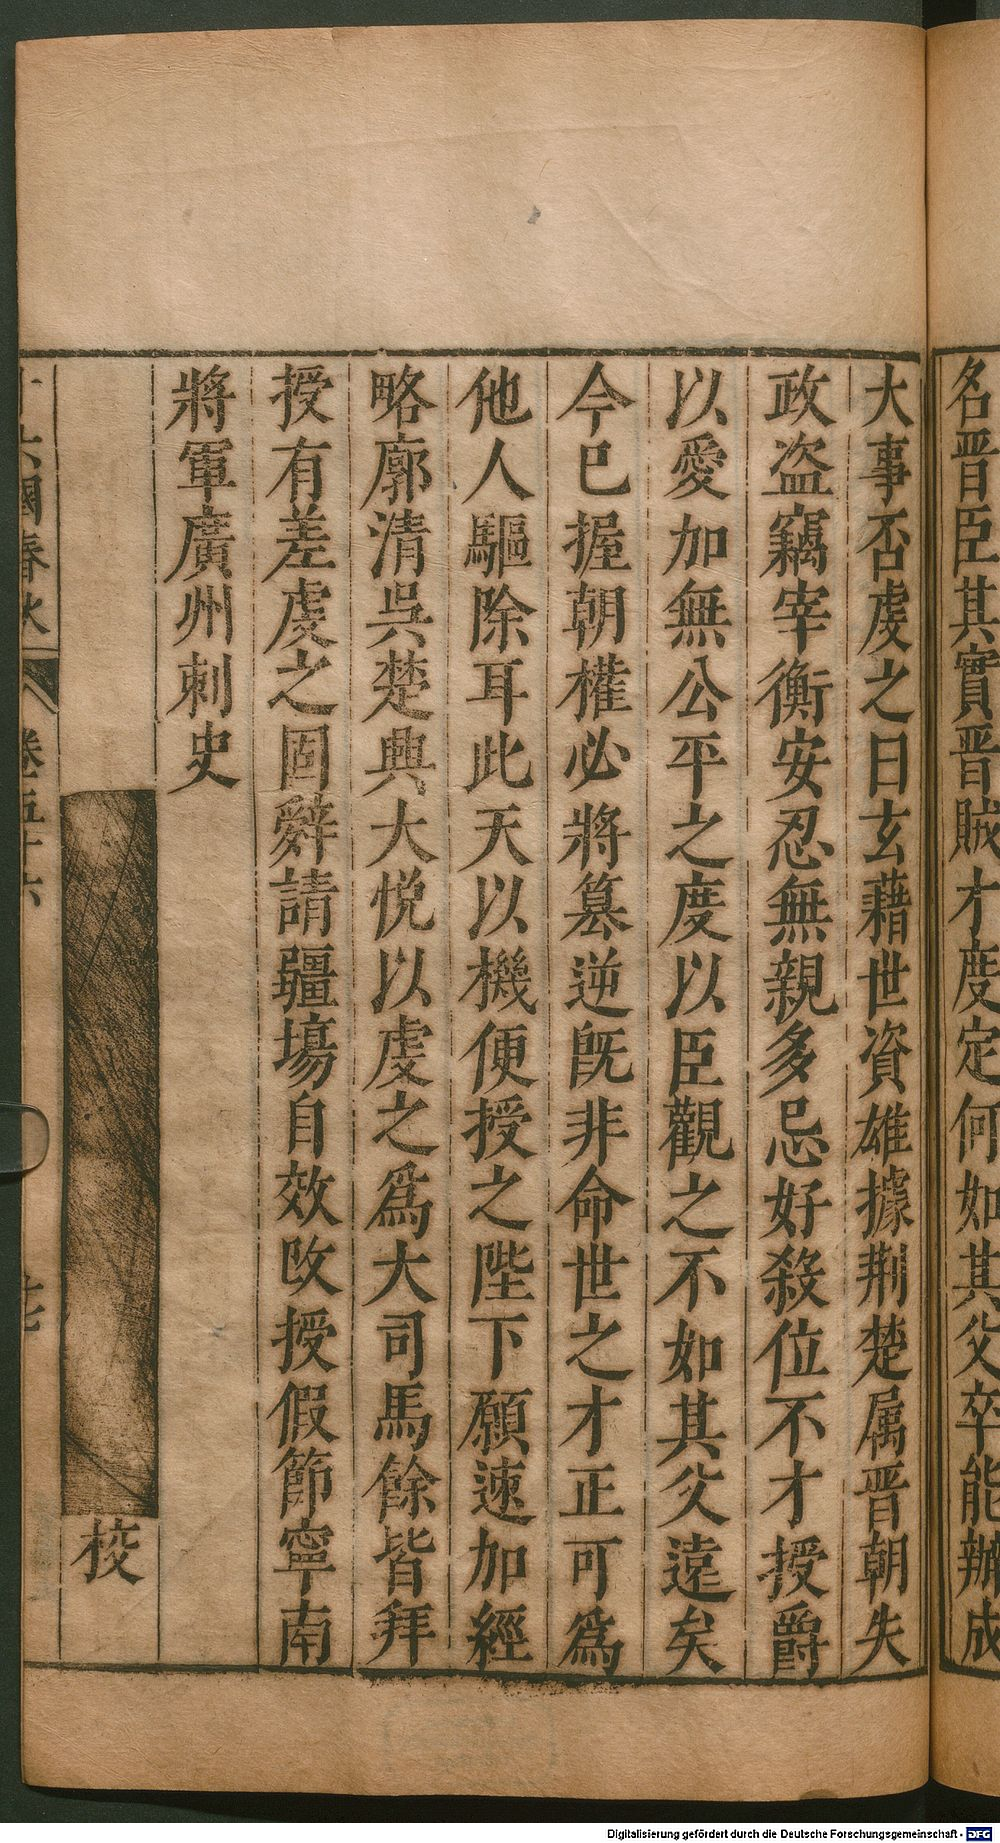 名晋臣其實晋賊才度定何如其父卒能辦成
大事否虔之曰玄藉世資雄據荆楚属晋朝失
政盗竊宰衡安忍無親多忌好殺位不才授爵
以愛加無公平之度以臣觀之不如其父遠矣
今已握朝權必將篡逆旣非命世之才正可爲
他人驅除耳此天以機便授之陛下願速加經
略廓清吳楚典大悅以虔之爲大司馬餘皆拜
授有差虔之固辤請疆場自效改授假節寧南
將軍廣州刺史
校
十六國春秋 卷五十六 廿七
Digitalisierung gefördert durch die Deutsche Forschungsgemeinschaft - DFG